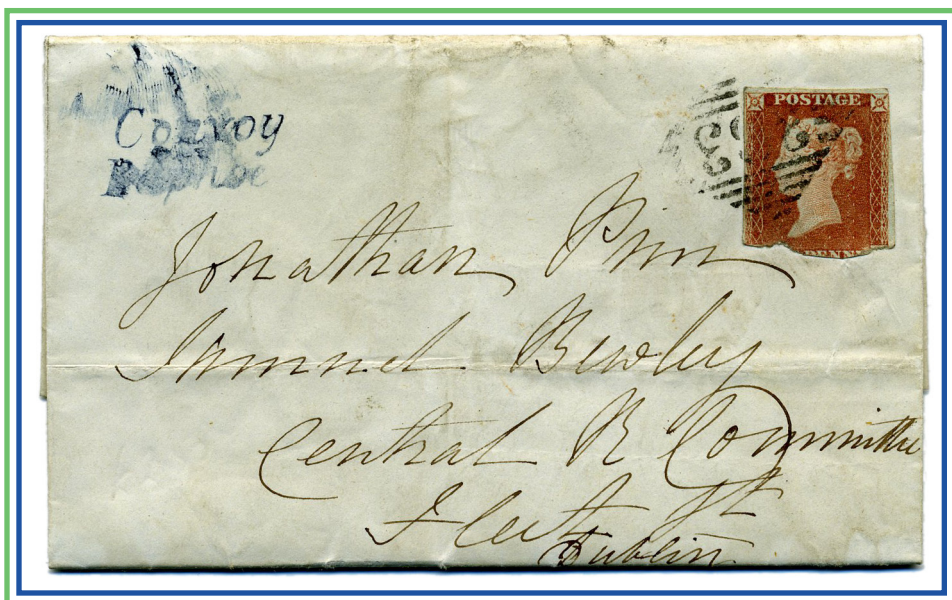 Convoy
POSTAGE
Jonathan Pim
Samuel Bewley
Central R Committee
Fleet St
Dublin